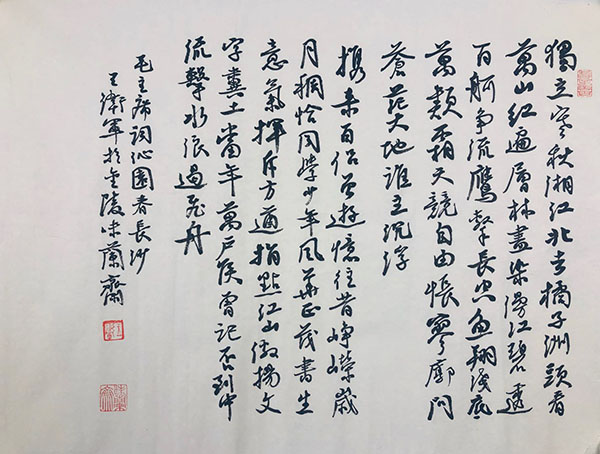 獨立寒秋湘江北去橘子洲頭看
萬山紅遍層林盡染漫江碧透
百舸争流鷹擊長空魚翔淺底
萬類霜天競自由悵寥廓問
蒼茫大地誰主沉浮
携来百侣曾遊憶往昔崢嶸歲
月稠恰同學少年風華正茂書生
意氣揮斥方遒指點江山激揚文
字糞土當年萬户侯曾記否到中
流擊水浪遏飛舟
毛主席詞沁園春長沙
王衛軍於金陵味蘭齋